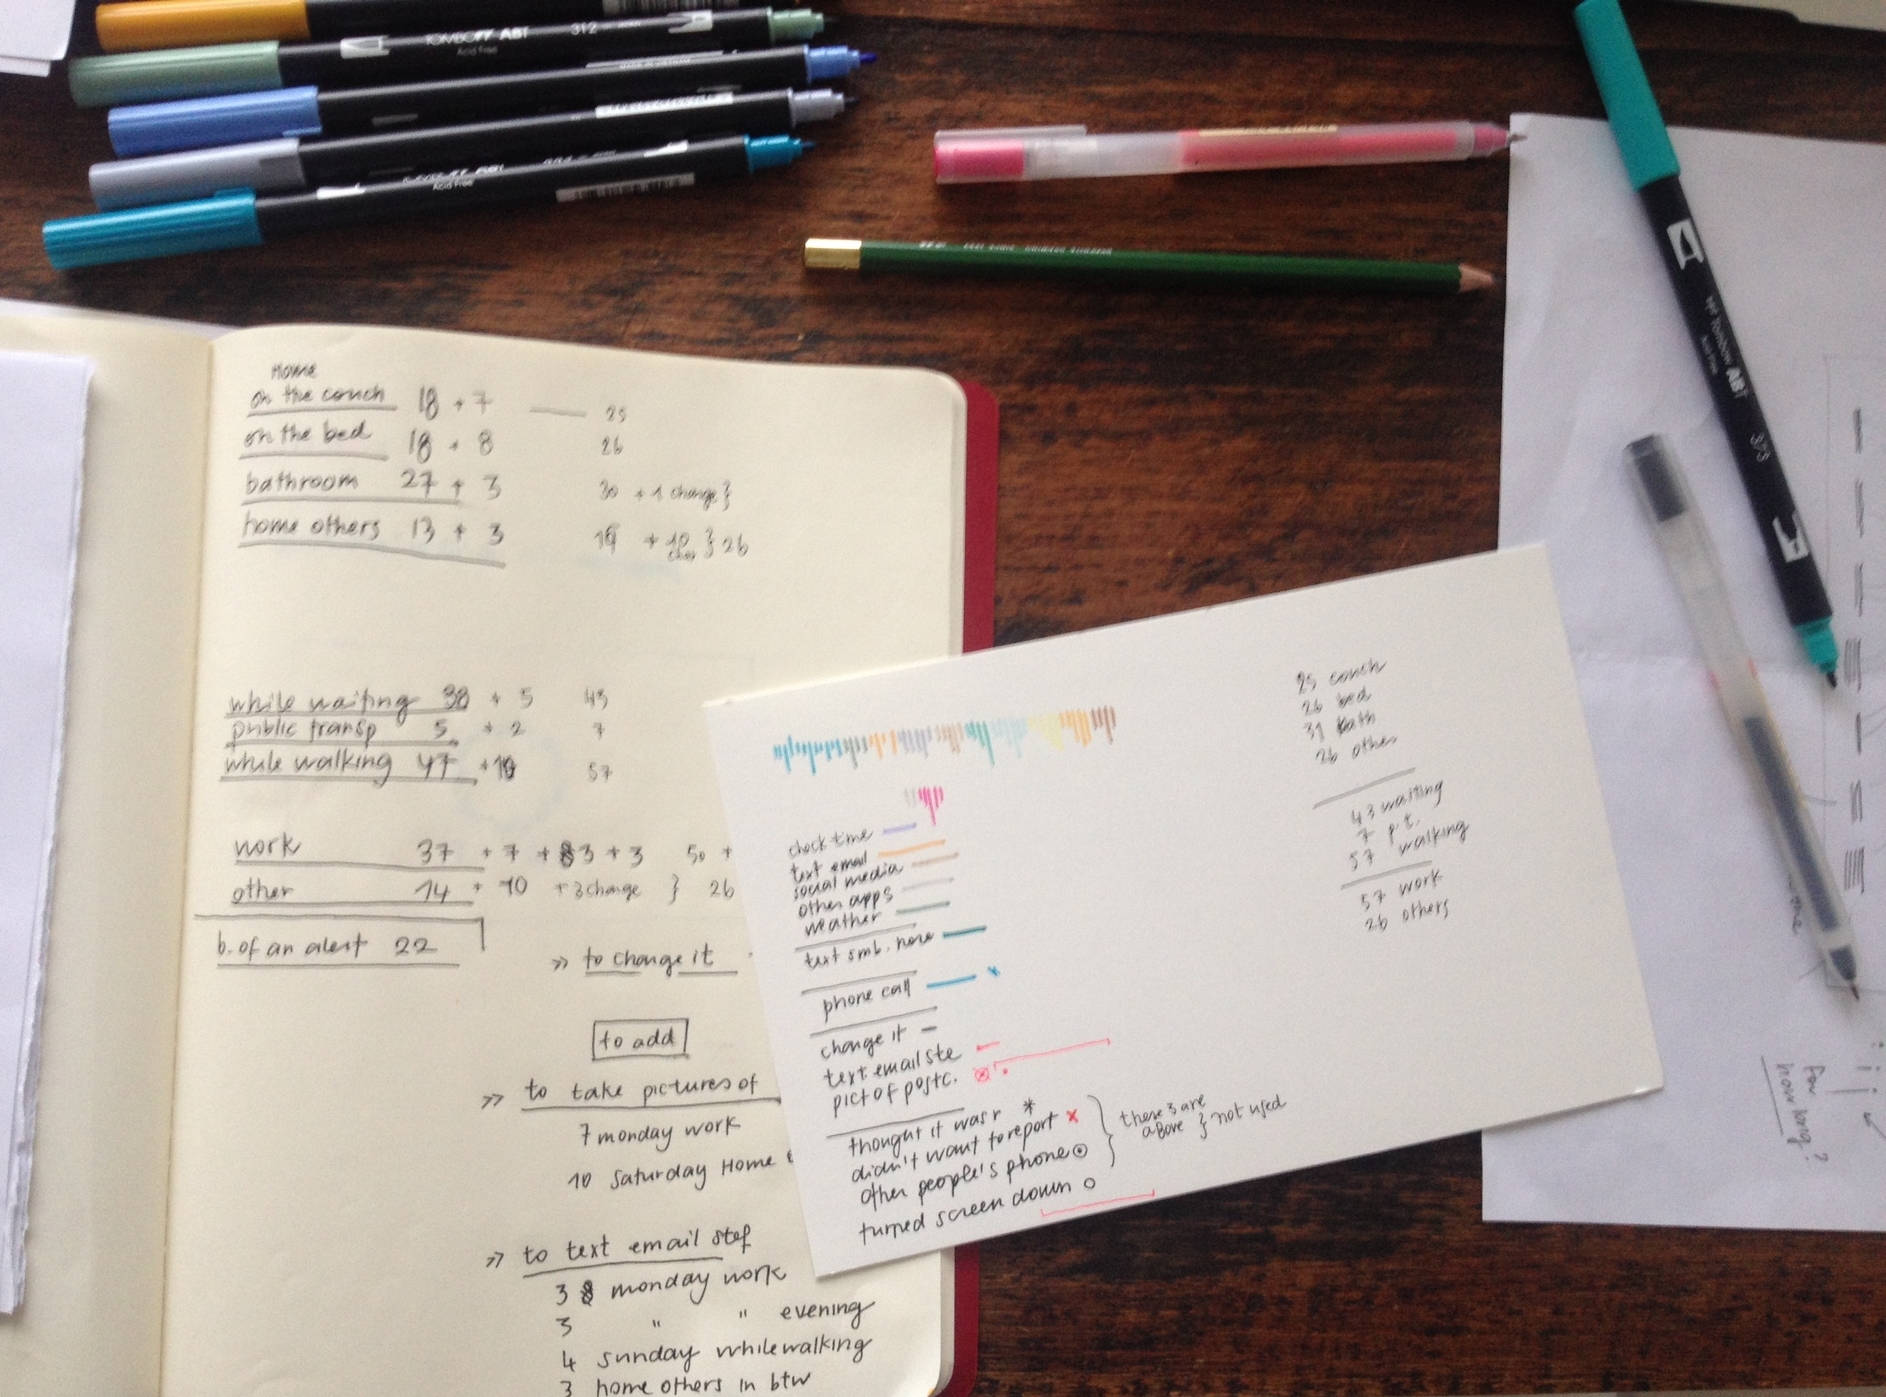 TOMBOW ABT 312
Acid Free
Acid Free
Tombow ABT 373
Acid Free
Home
on the couch 18 + 7 — 25
on the bed 18 + 8 26
bathroom 27 + 3 30 + 1 change }
home others 13 + 3 16 + 10 } 26
while waiting 38 + 5 43
public transp 5 + 2 7
while walking 47 + 10 57
work 37 + 7 + 3 + 3 50 +
other 14 + 10 + 3 change } 26
b. of an alert 22
» to change it
to add
» to take pictures of
7 monday work
10 Saturday Home
» to text email stef
3 monday work
3 " " evening
4 sunday while walking
3 home others in btw
check time
text email
social media
other apps
weather
text smb. here
phone call
change it
text email ste
pict of postc.
thought it was r *
didn't want to report x
other people's phone
turned screen down
these 3 are
above } not used
25 couch
26 bed
31 bath
26 other
43 waiting
7 p.t.
57 walking
57 work
26 others
for
how long?